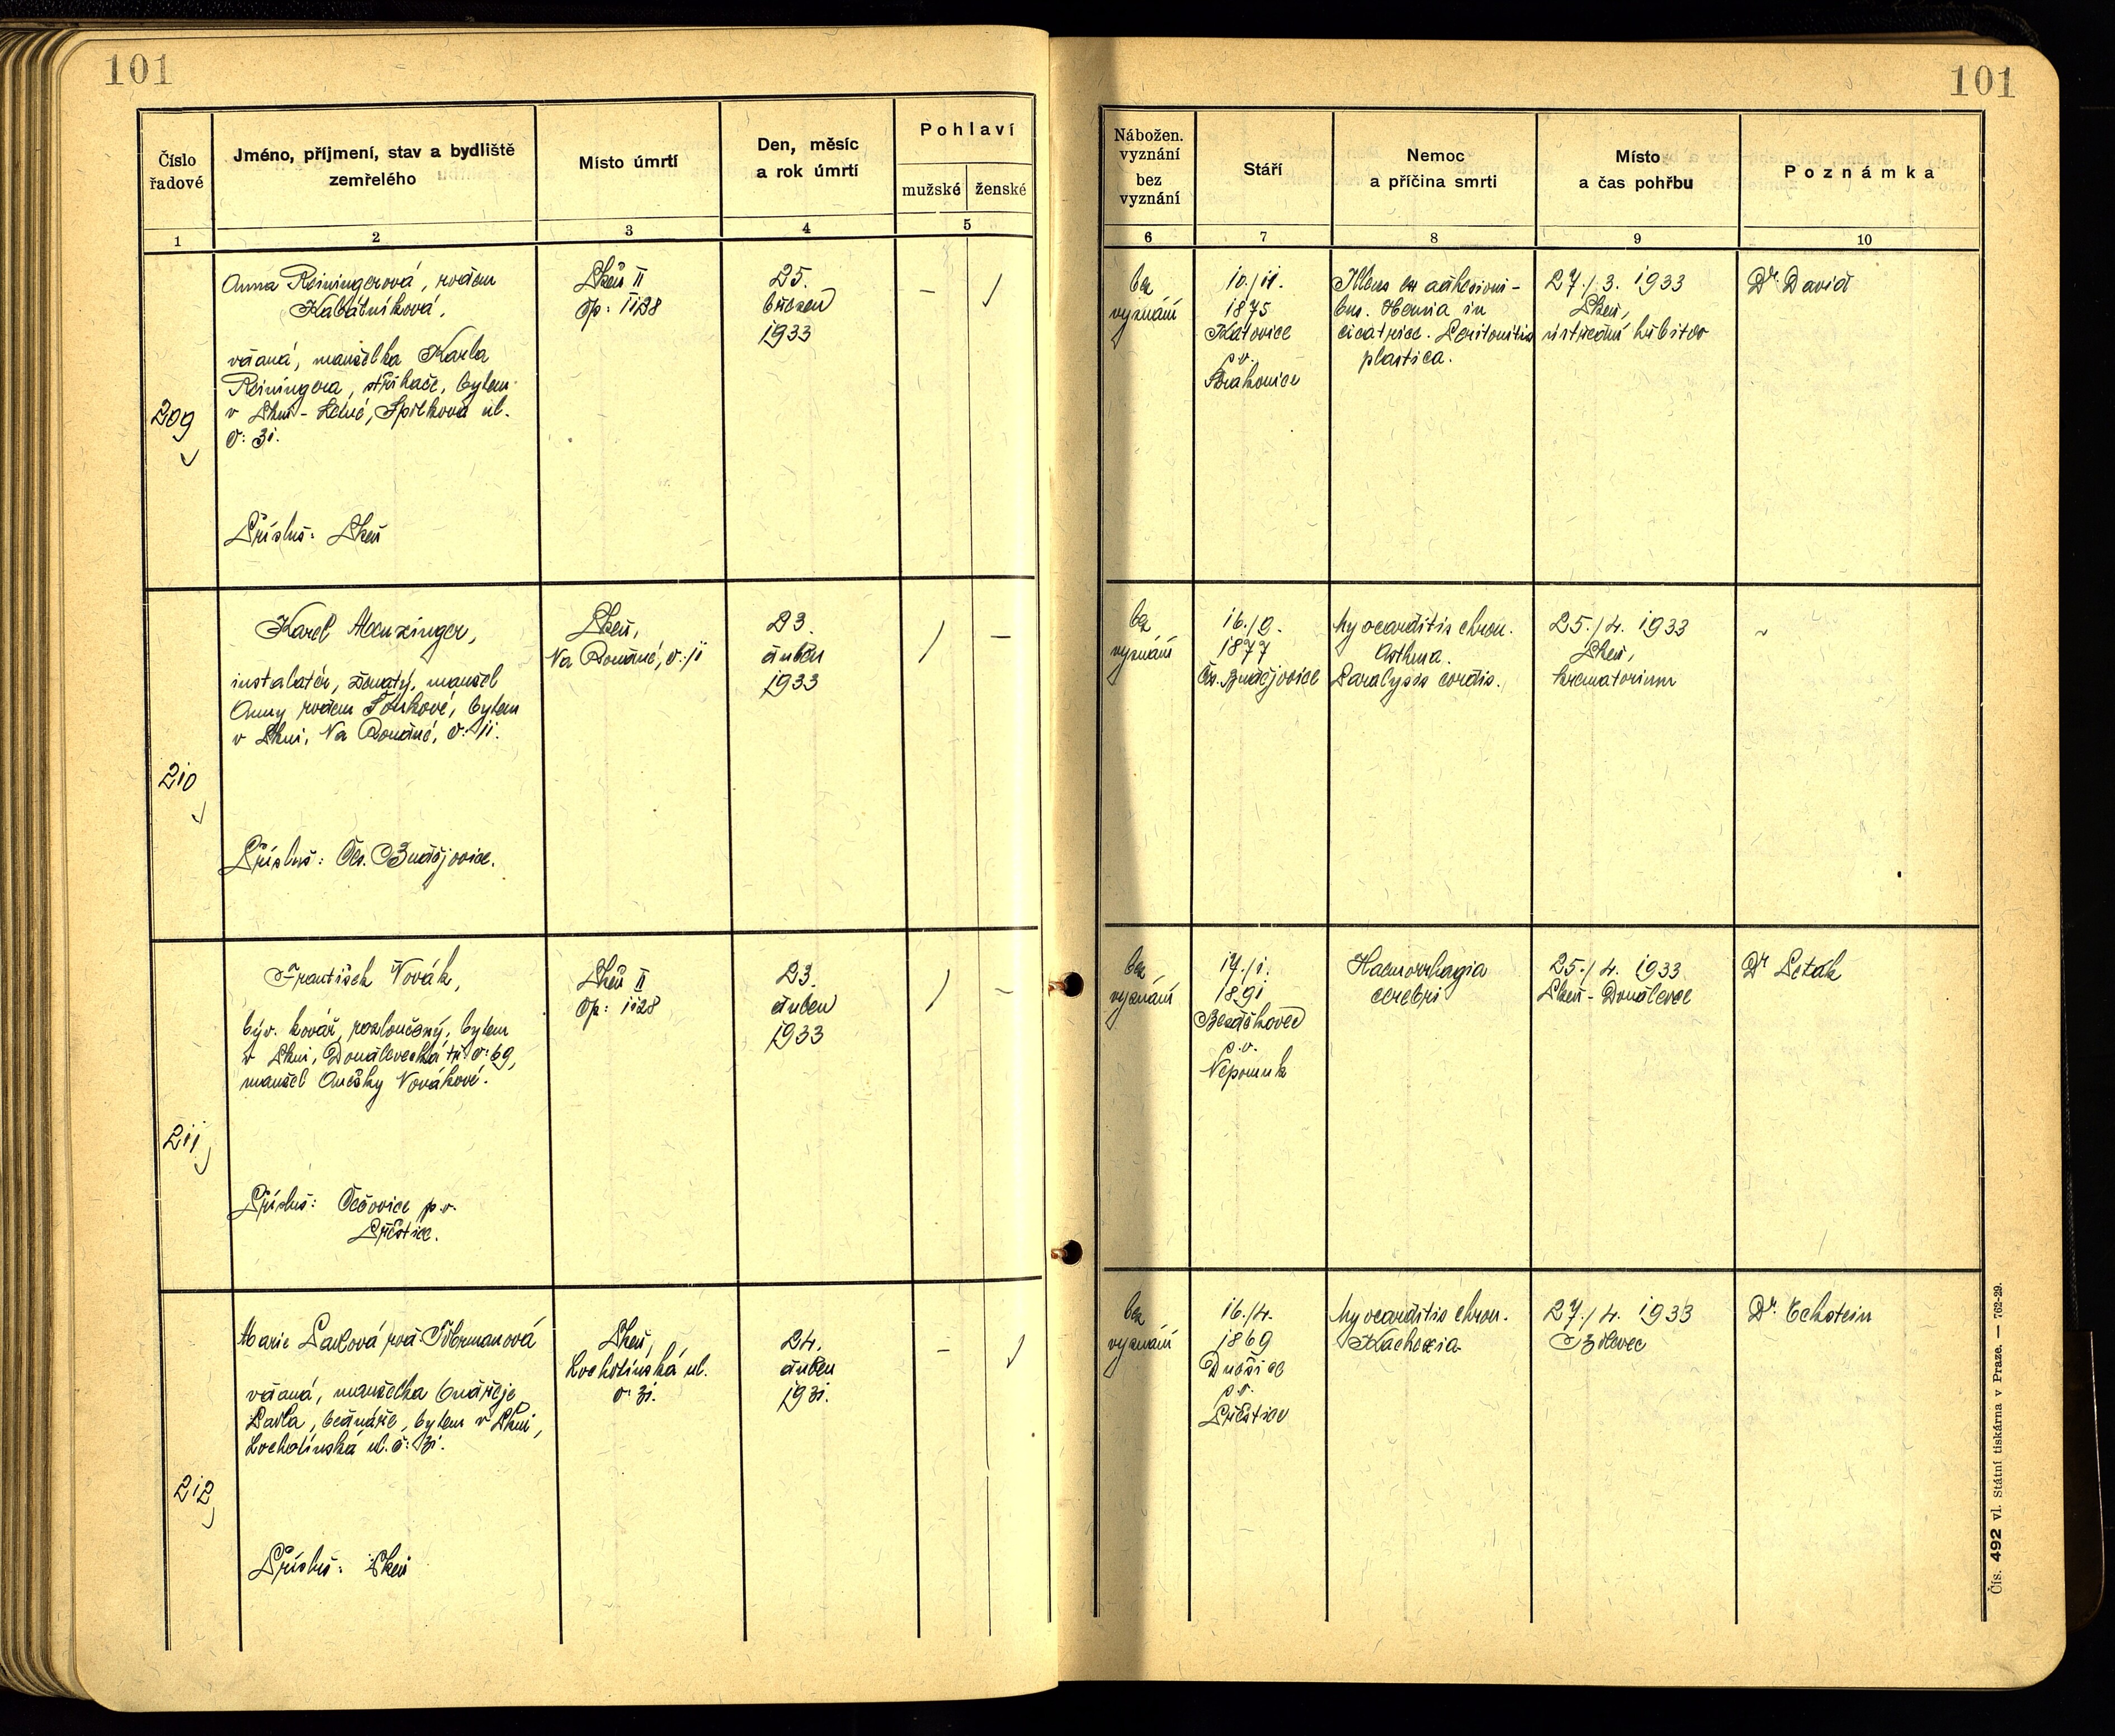 101
Číslo
řadové
Jméno, příjmení, stav a bydliště
zemřelého
Místo úmrtí
Den, měsíc
a rok úmrtí
Pohlaví
mužské
ženské
1
2
3
4
5
209
Anna Reiningerová, rozen
Kabátníková,
vdaná, manželka Karla
Reiningera, stříkače, bytem
v Plzni-
ul.
č: 31.
Přísluš: Plzeň
Plzeň II
čp: 1128
25.
březen
1933
–
/
210
Karel Menzinger,
instalatér, ženatý, manžel
Anny rozen
bytem
v Plzni, Na Roudné, č: 11.
Přísluš: Čes. Budějovice.
Plzeň,
Na Roudné, č: 11
23.
duben
1933
/
–
211
František Novák,
býv. kovář, rozloučený, bytem
v Plzni, Doudlevecká tř. č: 69,
manžel Anežky Novákové.
Přísluš: Čečovice p. v.
Přeštice.
Plzeň II
čp: 1128
23.
duben
1933
/
–
212
Marie Pavlová roz
vdaná, manželka Ondřeje
Pavla, bednáře, bytem v Plzni,
Lochotínská ul. č: 31.
Přísluš: Plzeň
Plzeň,
Lochotínská ul.
č: 31.
24.
duben
1931.
–
/
101
Nábožen.
vyznání
bez
vyznání
Stáří
Nemoc
a příčina smrti
Místo
a čas pohřbu
Poznámka
6
7
8
9
10
bez
vyznání
10./11.
1875
Katovice
p. v.
Strakonice
Ileus ex adhesioni-
bus. Hernia in
cicatrice. Peritonitis
plastica.
27./3. 1933
Plzeň,
ústřední hřbitov
Dr David
bez
vyznání
16./9.
1877
Čes. Budějovice
Myocarditis chron.
Asthma.
Paralysis cordis.
25./4. 1933
Plzeň,
krematorium
~
bez
vyznání
17./1.
1891
p. v.
Nepomuk
Haemorrhagia
cerebri
25./4. 1933
Plzeň-Doudlevce
Dr Leták
bez
vyznání
16./4.
1869
Dnešice
p. v.
Přeštice
Myocarditis chron.
Kachexia
27./4. 1933
Bolevec
Dr. Eckstein
Čís. 492 vl. Státní tiskárna v Praze. — 762-29.